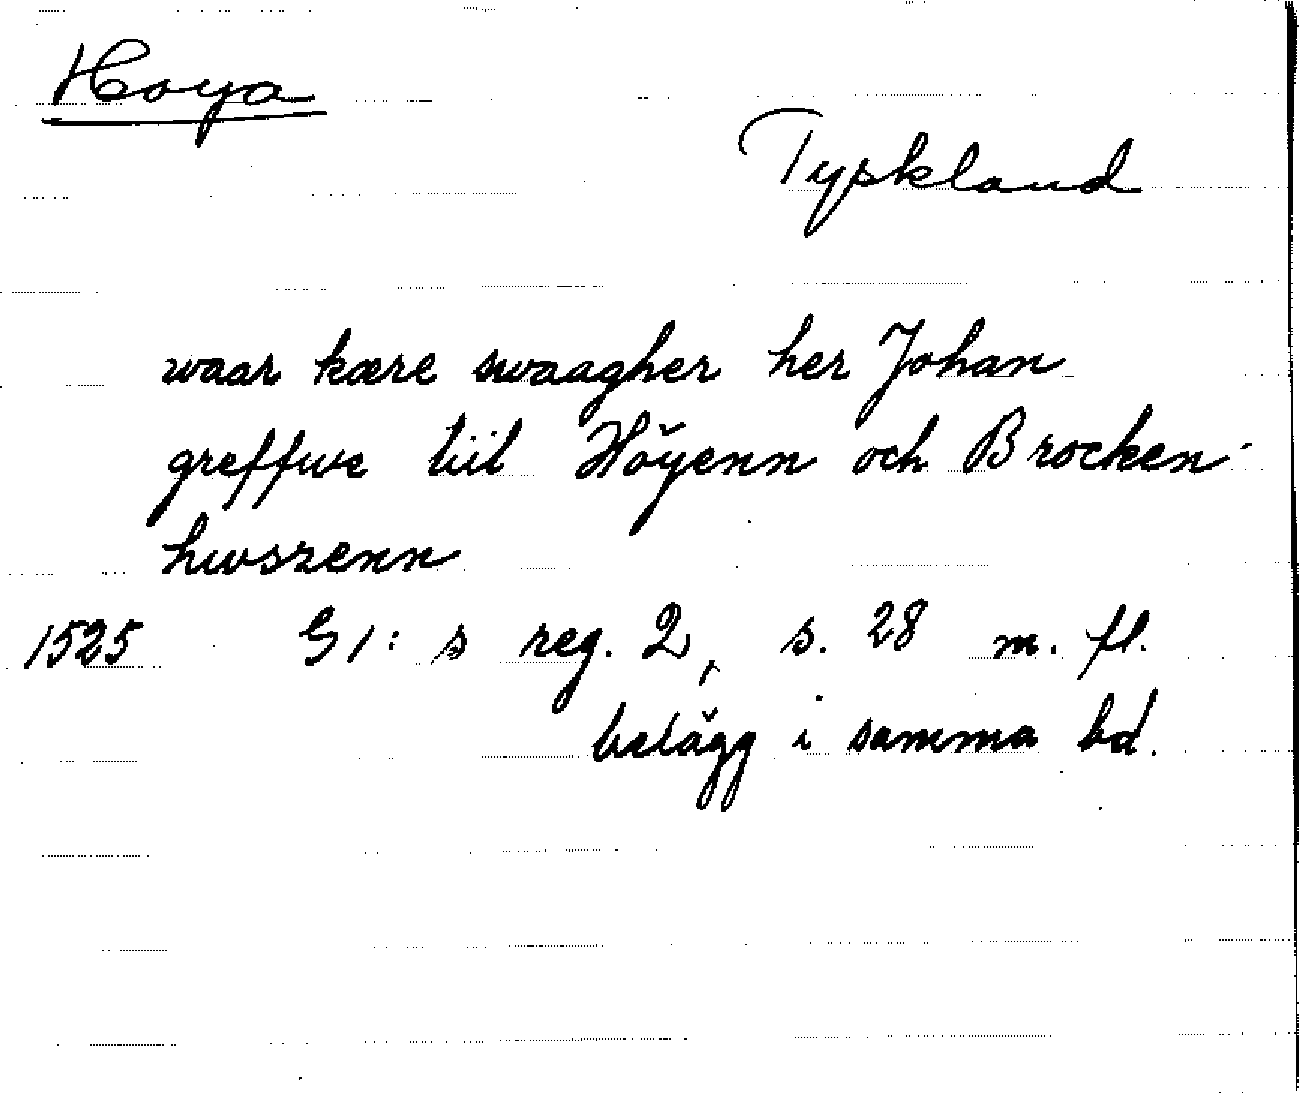 Hoya
Tyskland
waar kære swaagher her Johan
greffwe tiil Höyenn och Brocken-
hwszenn
1525 G I:s reg. 2, s. 28 m. fl.
belägg i samma bd.